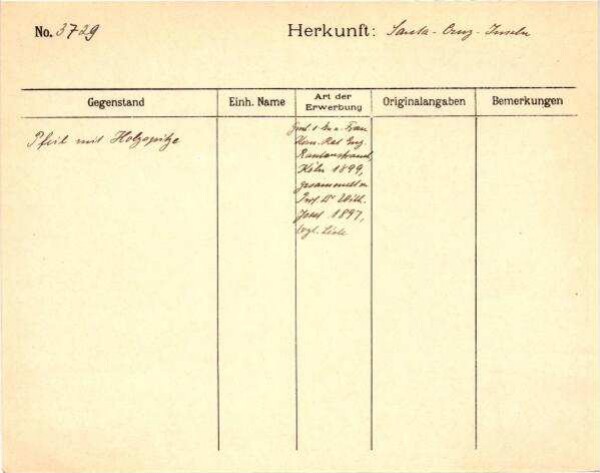 No. 3729
Herkunft: Santa-Cruz-Inseln
Gegenstand
Einh. Name
Art der
Erwerbung
Originalangaben
Bemerkungen
Pfeil mit Holzspitze
Frau
Kom.-Rat Eug.
Rautenstrauch,
Köln 1899,
gesammelt v.
Prof. Dr. Wilh.
Joest 1897,
vgl. Liste